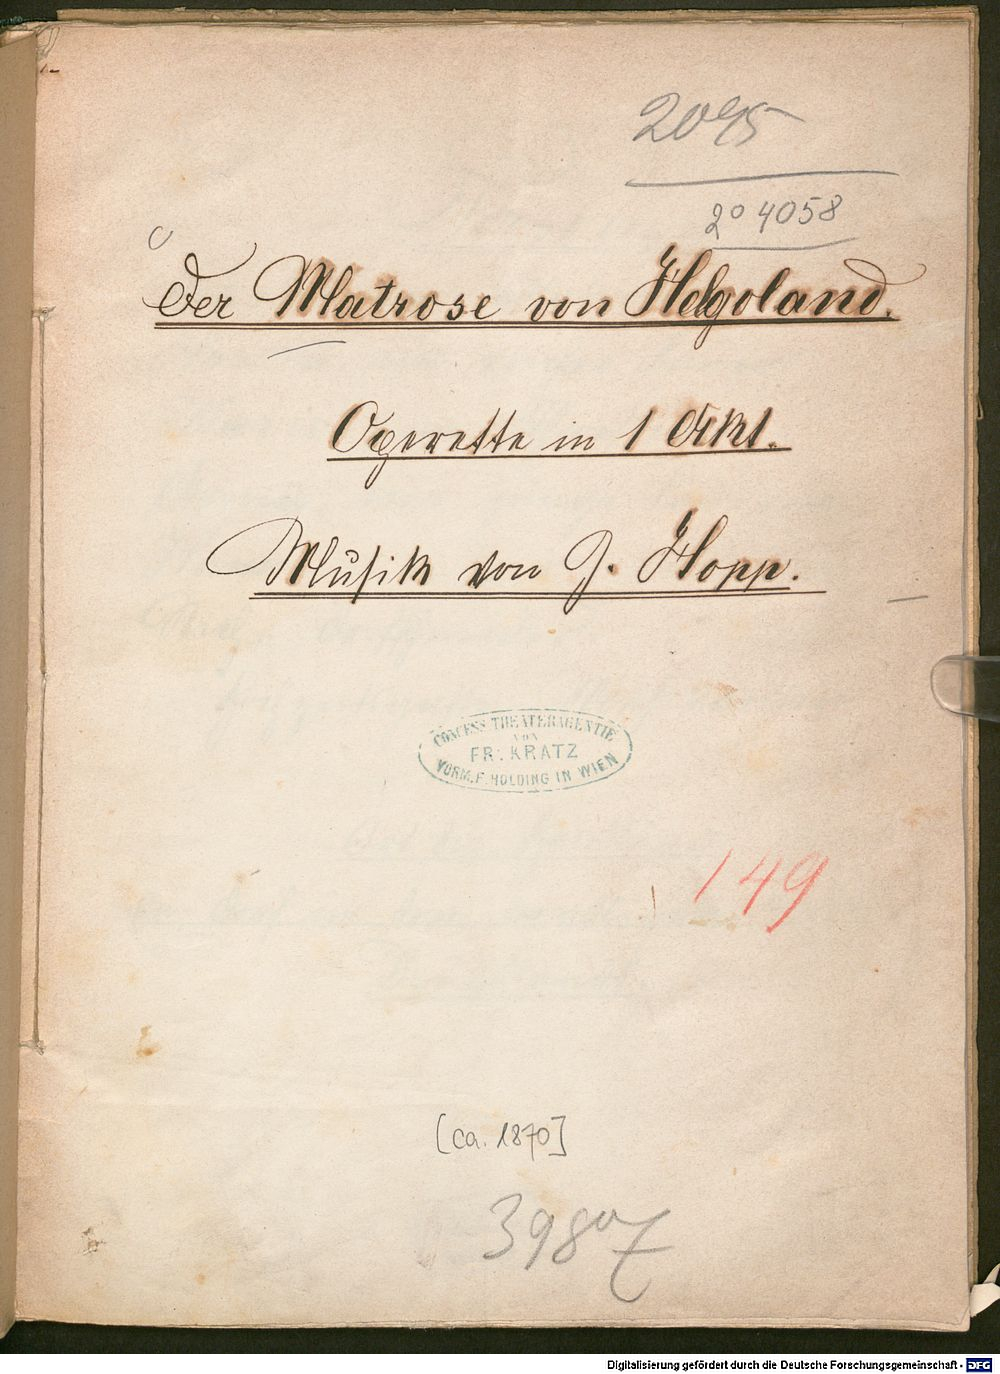 2095
2° 4058
Der Matrose von Helgoland.
Operette in 1 Akt.
Musik von J. Hopp.
CONCESS THEATERAGENTIE
VON
FR: KRATZ
VORM. F. HOLDING IN WIEN
149
[ca. 1870]
39807
Digitalisierung gefördert durch die Deutsche Forschungsgemeinschaft - DFG